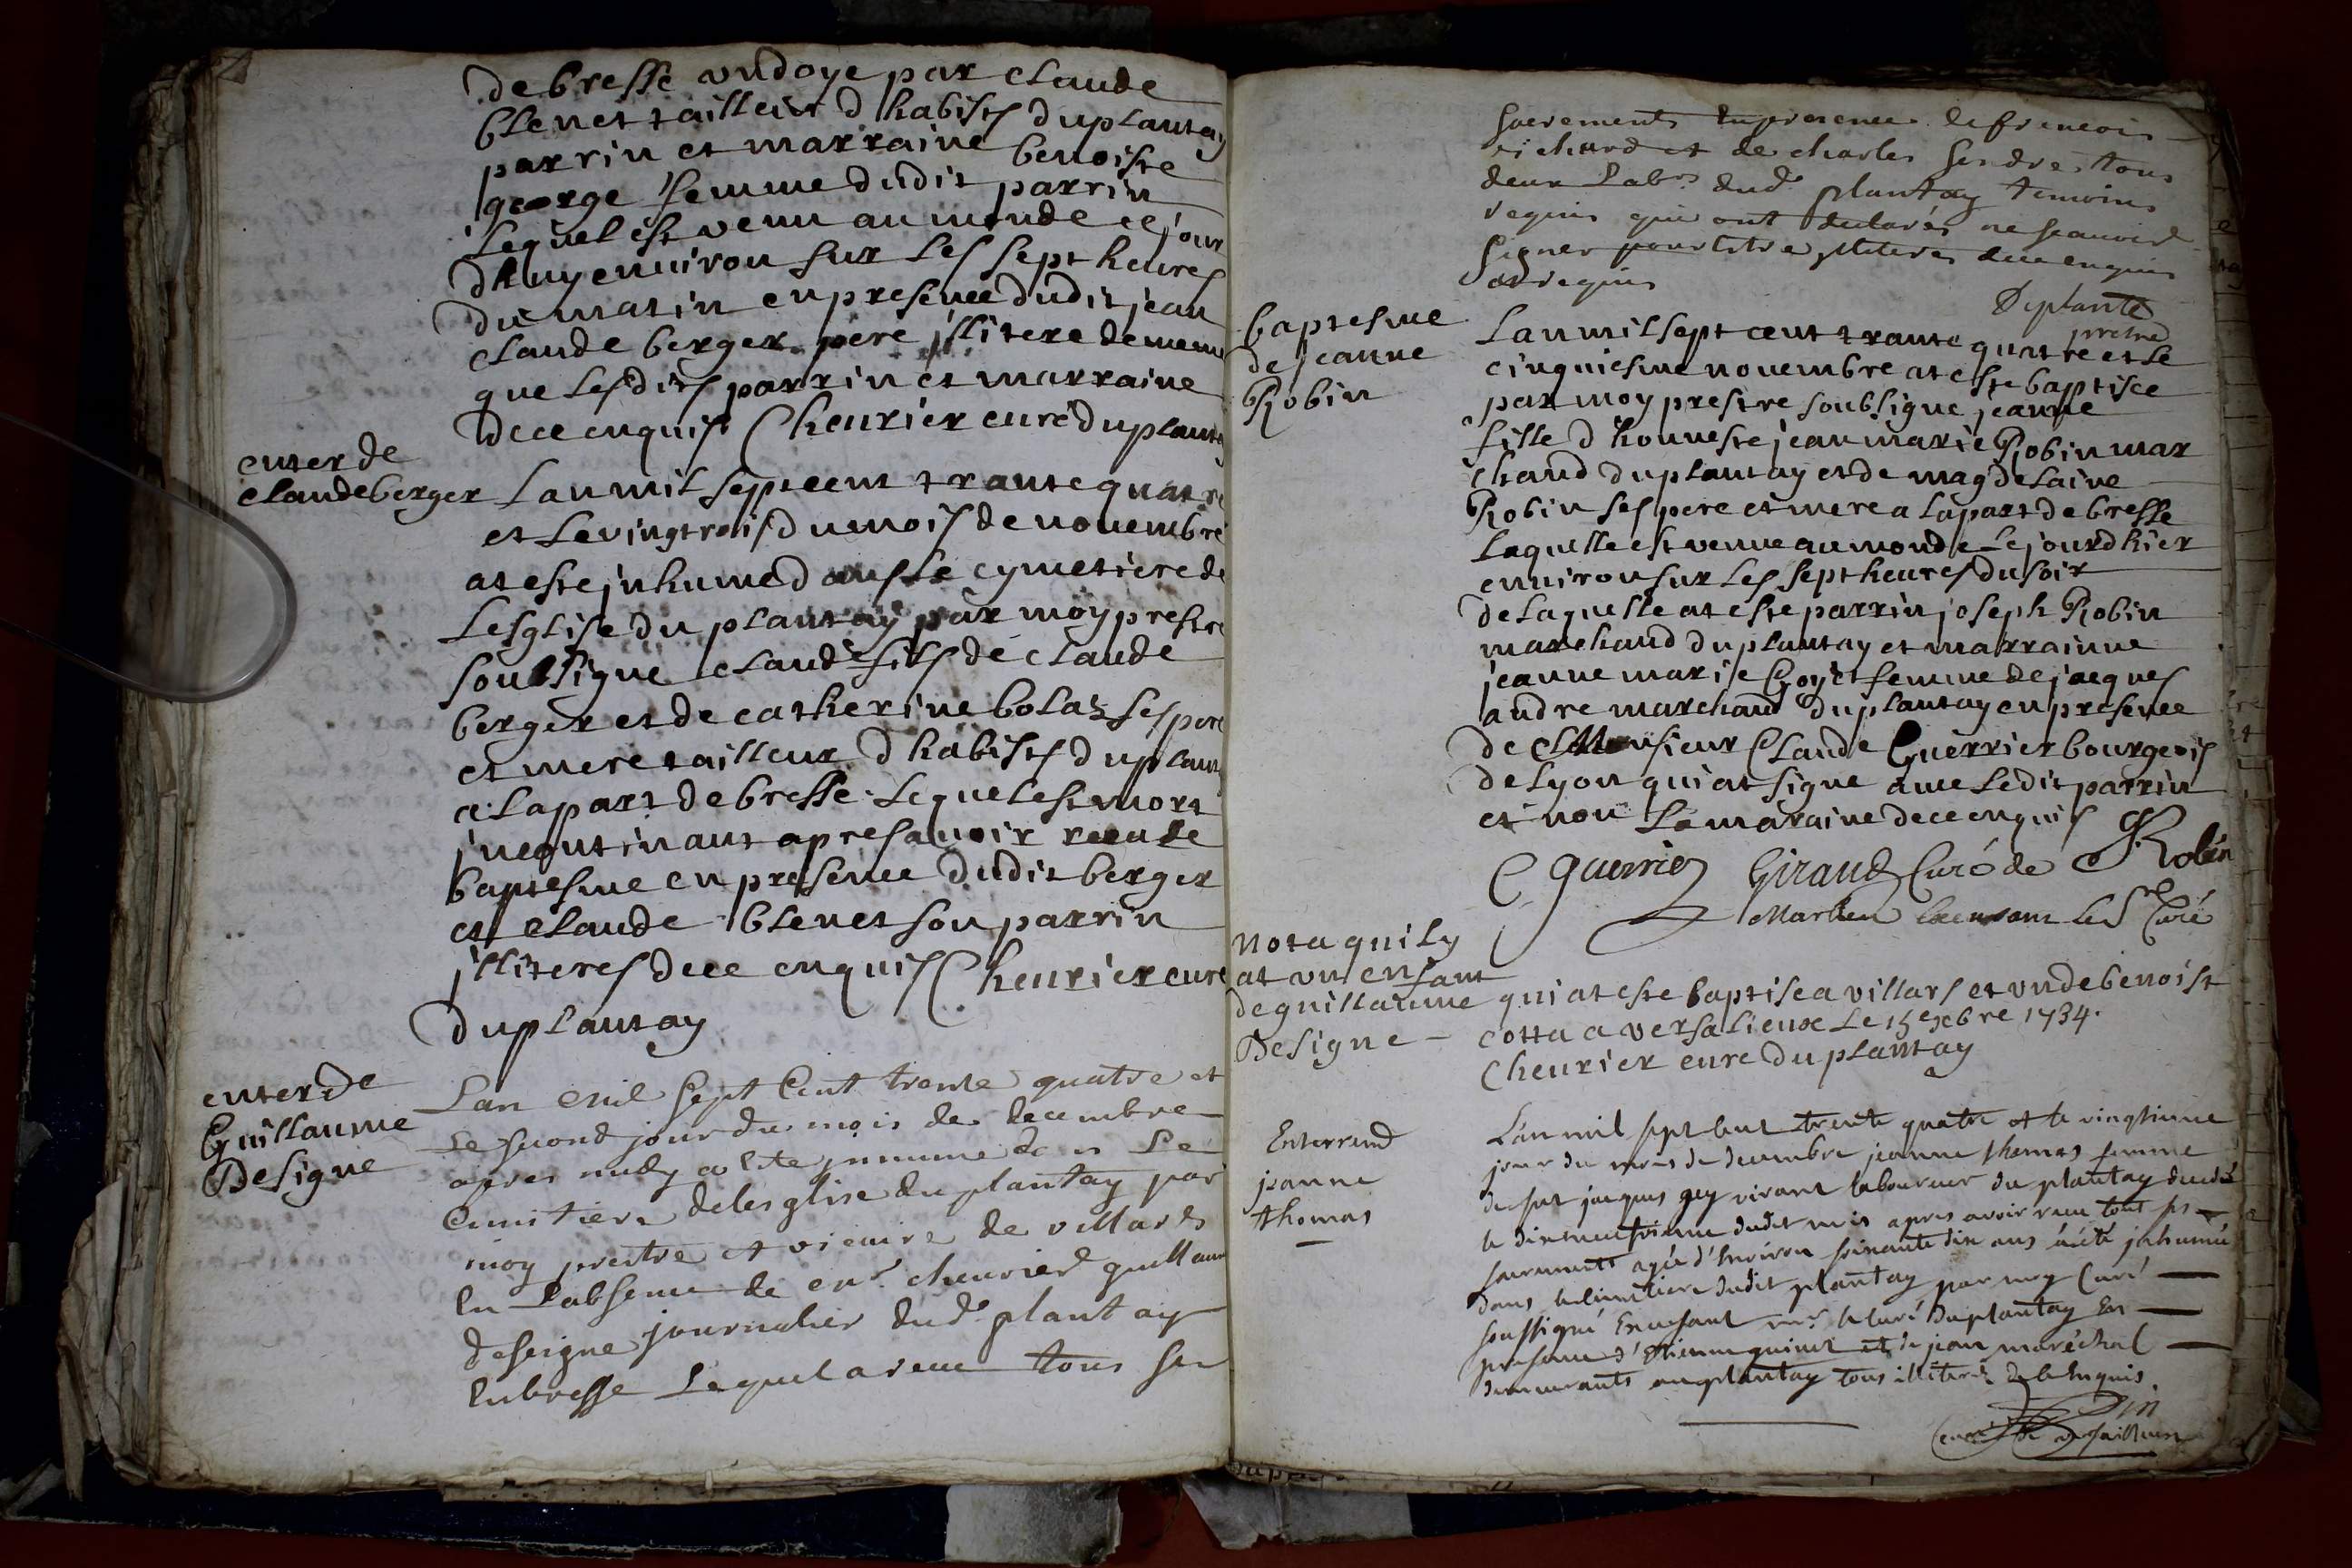 de bresse undoye par claude
blenet tailleur d habists du plantay
parrin et marraine benoiste
george femme dudit parrin
Lequel est venu au monde ce jour
dhuy environ sur les sept heures
du matin en presence dudit jean
claude berger pere jllitere de meme
que lesdits parrin et marraine
de ce enquis Cheurier curé du plantay
enter de
claude berger
Lan mil sept cent trante quatre
et le vingt trois du mois de nouembre
at este jnhume dans le cymetiere de
Lesglise du plantay par moy prestre
soubsigne claude fils de claude
berger et de catherine bolaz ses pere
et mere tailleur d habists du plantay
a la part de bresse lequel est mort
jncontinant apres avoir receu le
baptesme en presence dudit berger
et claude blenet son parrin
jlliteres de ce enquis Cheurier curé
du plantay
enter de
Guillaume
Designe
Lan mil sept cent trente quatre et
le second jour du mois de decembre
apres midy a ete jnnume dans le
cimitiere de lesglise du plantay par
moy prestre et vicaire de villards
en l'absence de mr cheurier guillaume
deseigne journalier dud plantay
en bresse Lequel a receu tous ses
sacrements en presence de francois
richard et de charles gendre tous
deux labrs dud plantay temoins
requis qui ont declarés ne scauoir
signer pour estre jlliteres de ce enquis
et requis
Duplanté
pretre
baptesme
de jeanne
Robin
Lan mil sept cent trante quatre et le
cinquiesme nouembre at este baptisee
par moy prestre soubsigne jeanne
fille d honneste jean marie Robin mar
chand du plantay et de magdelaine
Robin ses pere et mere a la part de bresse
laquelle est venue au monde le jourd hier
environ sur les sept heures du soir
de laquelle at este parrin joseph Robin
marchand du plantay et marrainne
jeanne marie Goyet femme de jacques
andre marchand du plantay en presence
de Monsieur Claude Guerrier bourgeois
de Lyon qui at signe auec ledit parrin
et non la maraine de ce enquis
C Guerrier Giraud Curé de J Robin
Marlieu exercant le Sr Curé
nota quil y
at un enfant
de guillaume
Designe –
qui at este baptise a villars et un de benoist
cotta a versalieux le 15e xbre 1734.
Cheurier cure du plantay
Enterremd
jeanne
thomas
L'an mil sept cent trente quatre et le vingtieme
jour du mois de decembre jeanne thomas femme
de fut jacques guy vivant laboureur du plantay decedé
le dixneufvieme dudit mois apres avoir receu tout ses
sacrements agée d'environ soixante dix ans a été jnhumée
dans le cimetiere dudit plantay par moy Curé
soussigné En absant mr le Curé Du plantay En
presence d'Etienne guinet et de jean maréchal
demeurants au plantay tous illiteres de ce enquis.